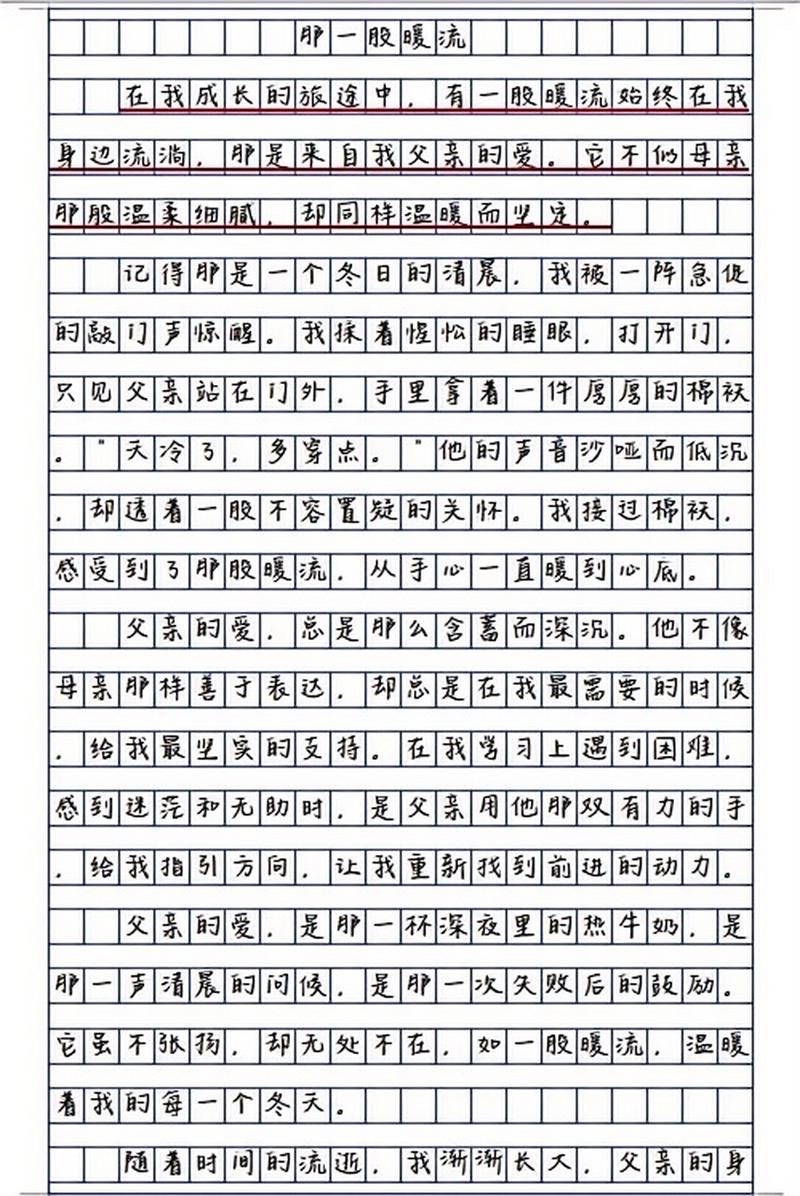 那一股暖流
在我成长的旅途中，有一股暖流始终在我
身边流淌，那是来自我父亲的爱。它不似母亲
那般温柔细腻，却同样温暖而坚定。
记得那是一个冬日的清晨，我被一阵急促
的敲门声惊醒。我揉着惺忪的睡眼，打开门，
只见父亲站在门外，手里拿着一件厚厚的棉袄
。"天冷了，多穿点。"他的声音沙哑而低沉
，却透着一股不容置疑的关怀。我接过棉袄，
感受到了那股暖流，从手心一直暖到心底。
父亲的爱，总是那么含蓄而深沉。他不像
母亲那样善于表达，却总是在我最需要的时候
，给我最坚实的支持。在我学习上遇到困难，
感到迷茫和无助时，是父亲用他那双有力的手
，给我指引方向，让我重新找到前进的动力。
父亲的爱，是那一杯深夜里的热牛奶，是
那一声清晨的问候，是那一次失败后的鼓励。
它虽不张扬，却无处不在，如一股暖流，温暖
着我的每一个冬天。
随着时间的流逝，我渐渐长大，父亲的身